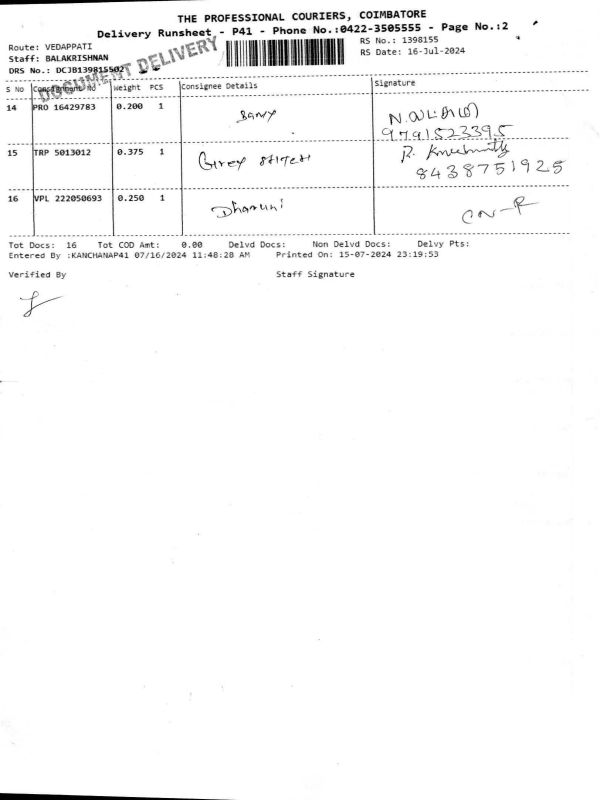 THE PROFESSIONAL COURIERS, COIMBATORE
Delivery Runsheet - P41 - Phone No.:0422-3505555 - Page No.:2
Route: VEDAPPATI
RS No.: 1398155
Staff: BALAKRISHNAN
RS Date: 16-Jul-2024
DRS No.: DCJB139815502
DOCUMENT DELIVERY
S No Consignment No Weight PCS Consignee Details Signature
14 PRO 16429783 0.200 1
9791523395
15 TRP 5013012 0.375 1
8438751925
16 VPL 222050693 0.250 1 Dharuni
Tot Docs: 16 Tot COD Amt: 0.00 Delvd Docs: Non Delvd Docs: Delvy Pts:
Entered By :KANCHANAP41 07/16/2024 11:48:28 AM Printed On: 15-07-2024 23:19:53
Verified By Staff Signature